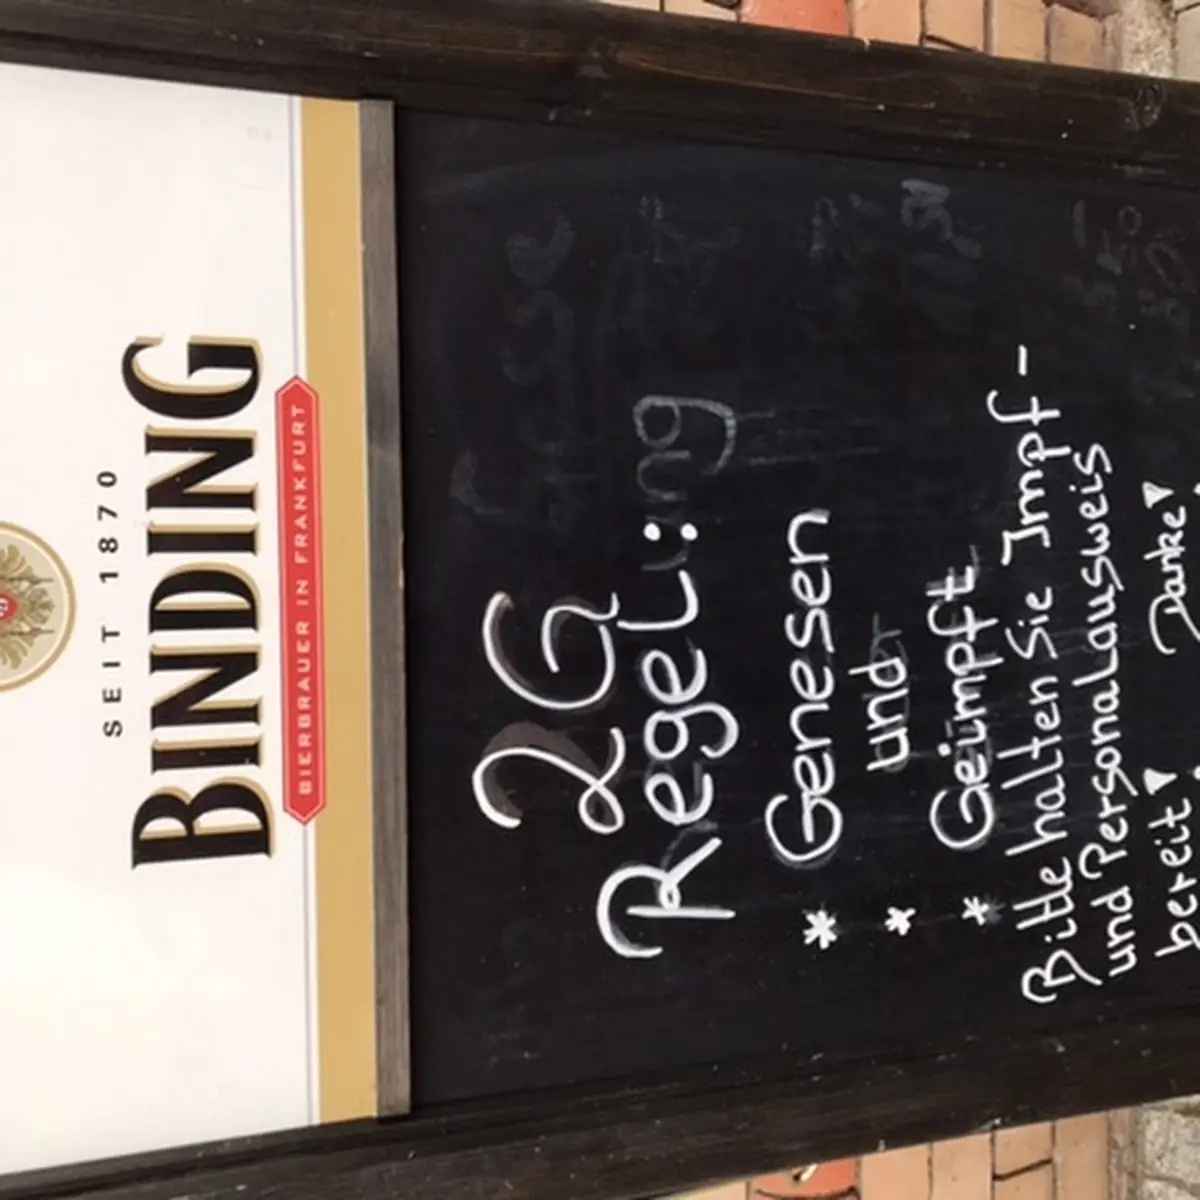 SEIT 1870
BINDING
BIERBRAUER IN FRANKFURT
2G
Regel:
* Genesen
* und
* Geimpft
Bitte halten Sie Impf-
und Personalausweis
bereit! Danke!